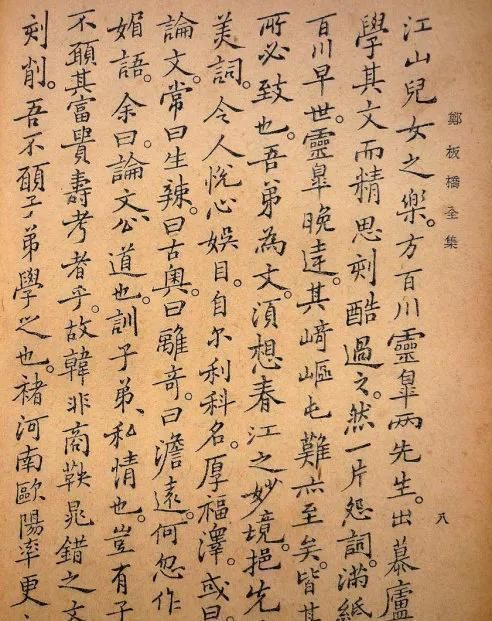 鄭板橋全集
八
江山兒女之樂。方百川靈臯兩先生。出慕廬
學其文而精思刻酷過之。然一片怨詞。滿紙
百川早世。靈臯晚達。其﨑嶇屯難亦至矣。皆其
所必致也。吾弟為文。須想春江之妙境。挹先
美詞。令人悅心娛目。自尔利科名。厚福澤。或曰
論文。常曰生辣。曰古奧。曰離奇。曰澹遠。何忽作
媚語。余曰。論文公道也。訓子弟、私情也。豈有子
不願其富貴壽考者乎。故韓非商鞅晁錯之文
刻削。吾不願子弟學之也。褚河南歐陽率更